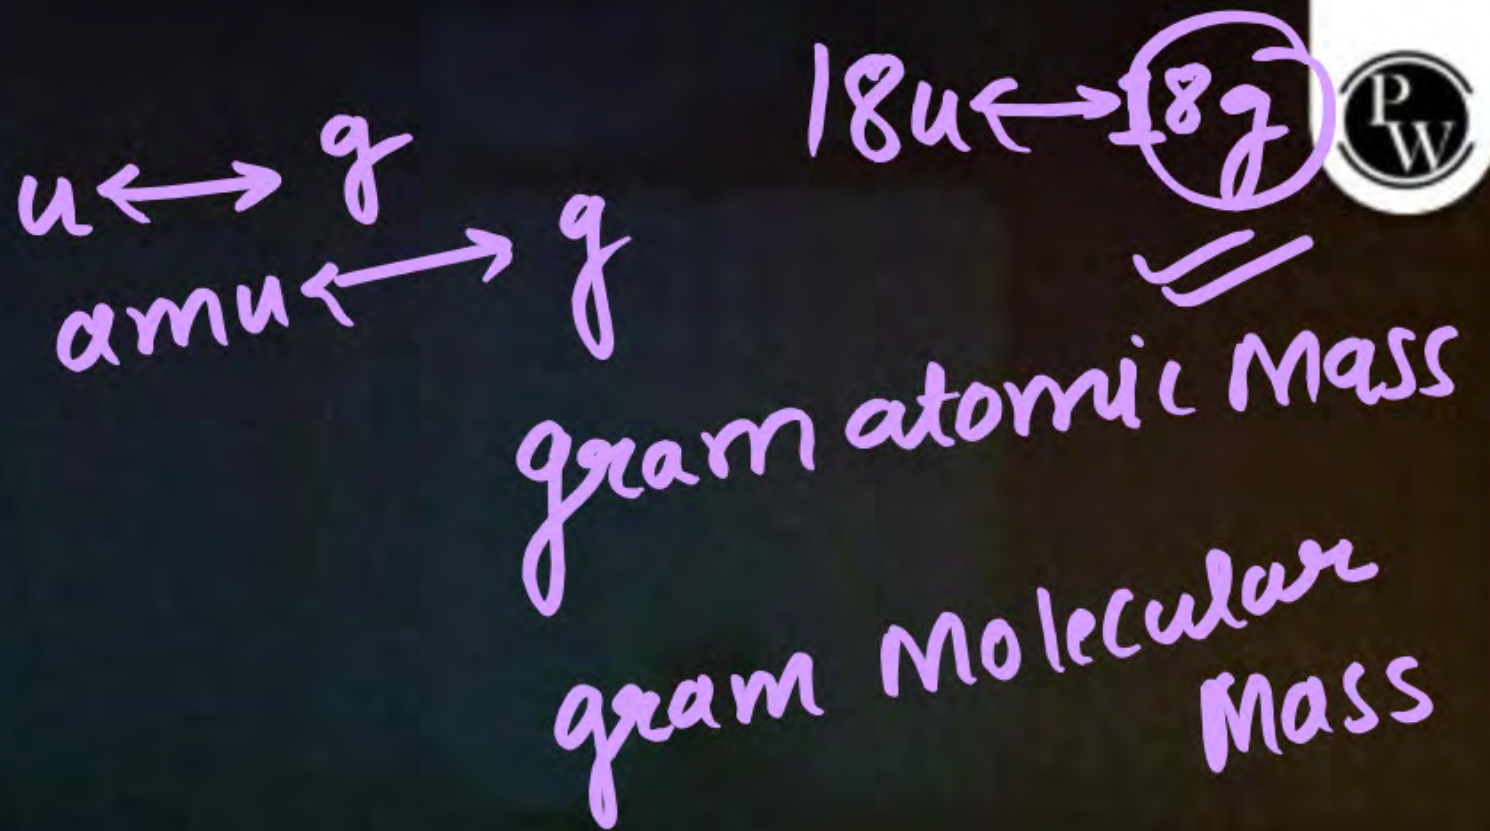 18u↔18g
PW
u↔g
amu↔g
gram atomic Mass
gram Molecular
Mass